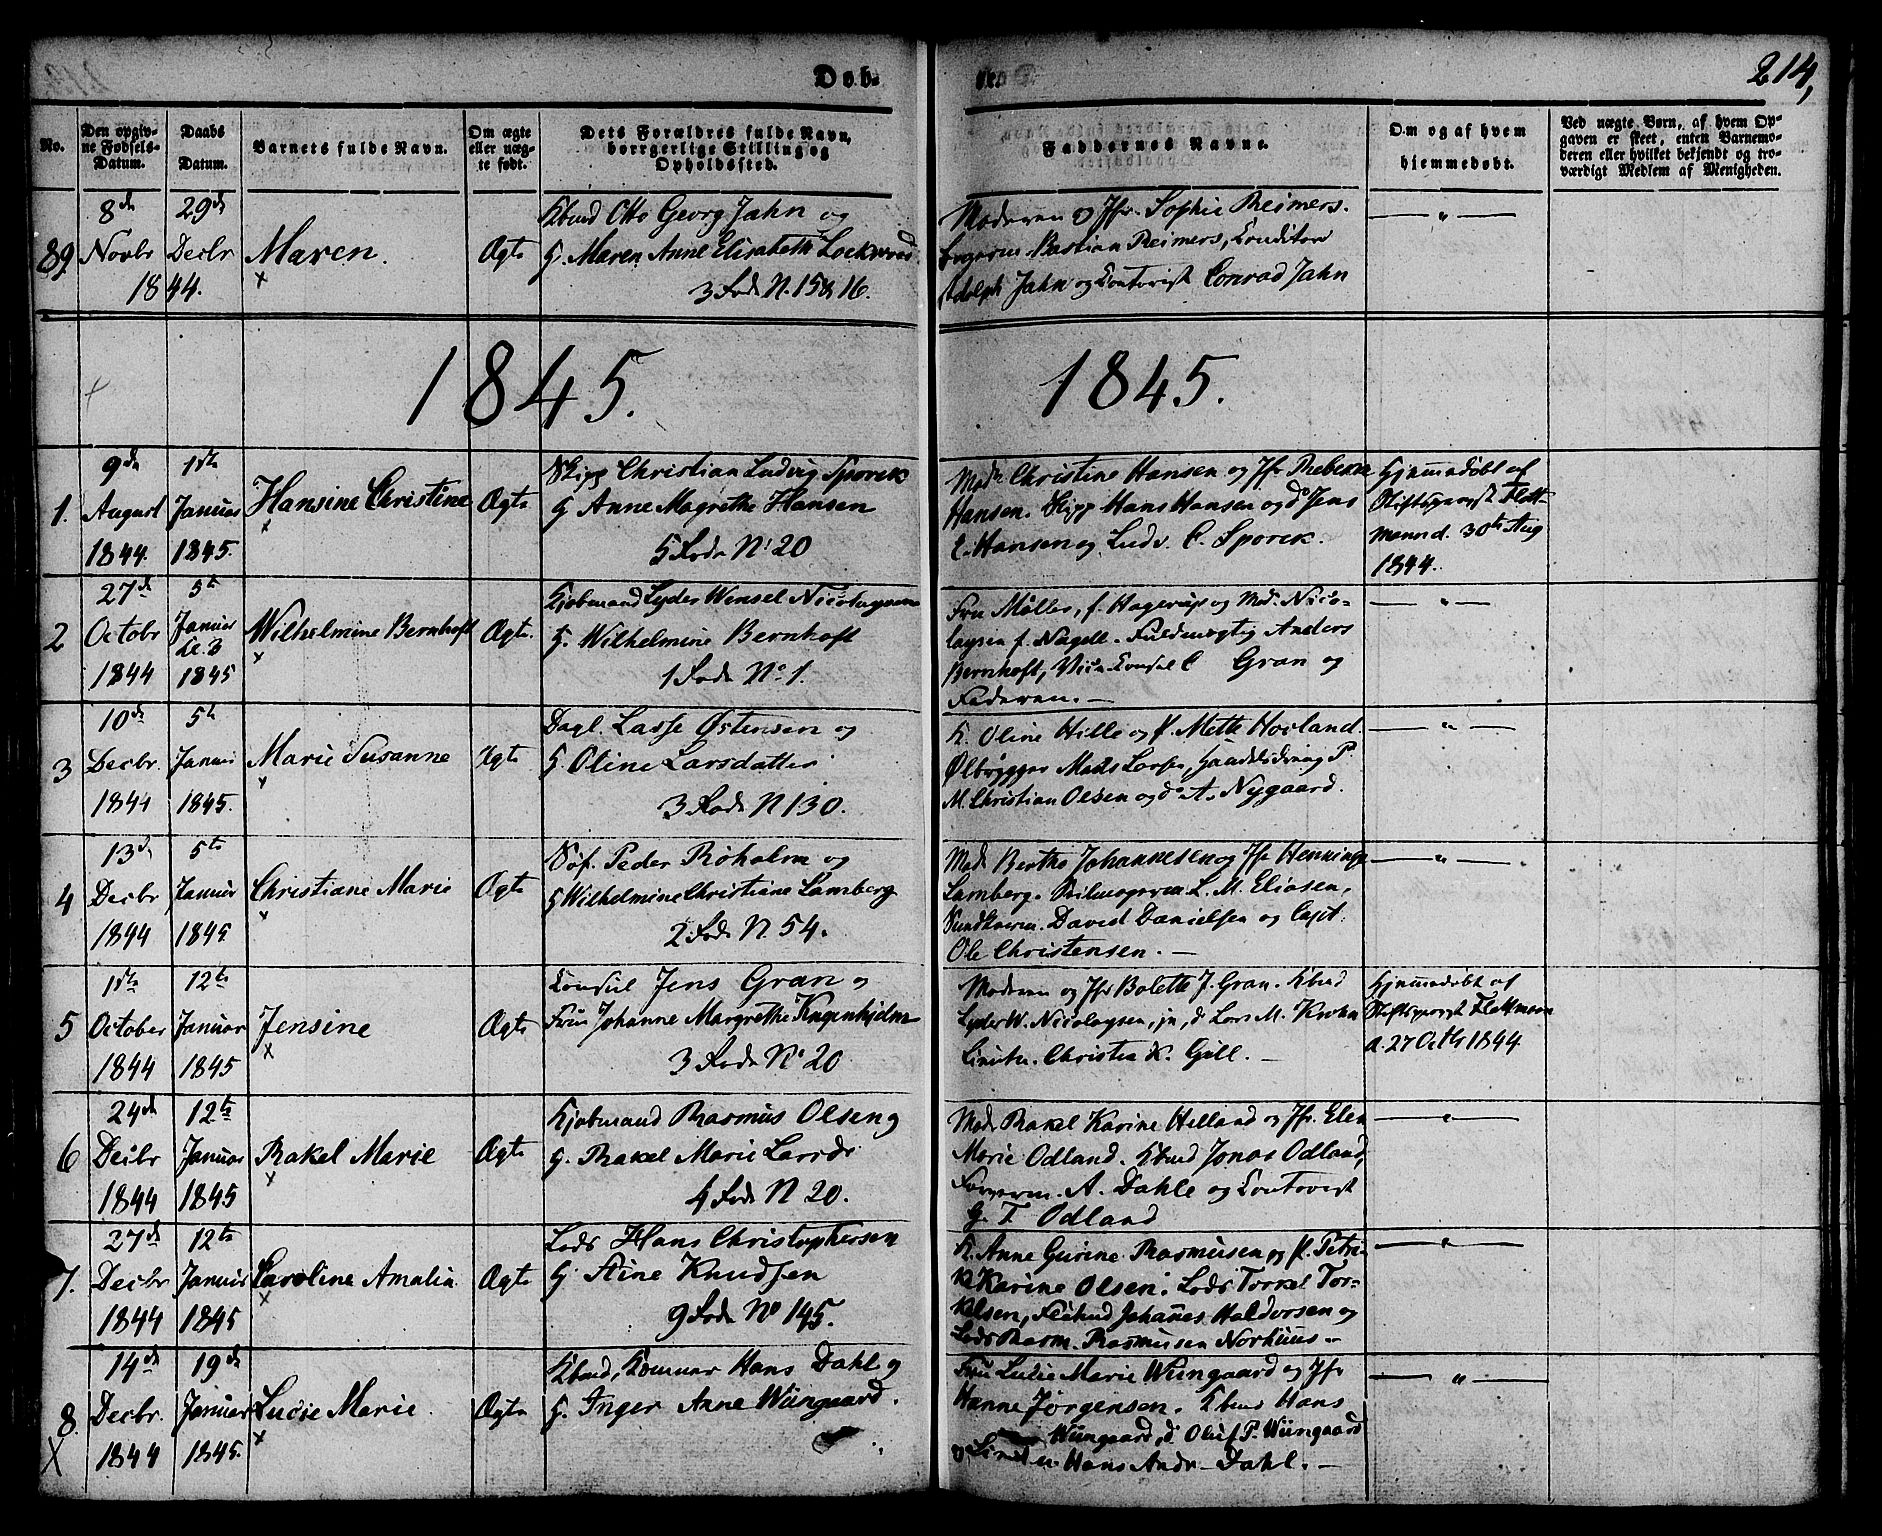 Døb-
te.
214,
No.
Den opgiv-
ne Fødsels-
Datum.
Daabs
Datum.
Barnets fulde Navn.
Om ægte
eller uæg-
te født.
Dets Forældres fulde Navn,
borgerlige Stilling og
Opholdssted.
Faddernes Navne.
Om og af hvem
hjemmedøbt.
Ved uægte Børn, af hvem Op-
gaven er skeet, enten Barnemo-
deren eller hvilket bekjendt og tro-
værdigt Medlem af Menigheden.
89
8de
Novbr
1844.
29de
Decbr
Maren.
Ægte
Kbmd Otto Georg Jahn og
H. Maren Anne Elisabeth
3 Rode N. 15 & 16.
Moderen og Jfr. Sophie Reimers.
Bastian Reimers, Conditor
Adolph Jahn og Contorist Conrad Jahn
— " —
1845.
1845.
1.
9de
August
1844.
1ste
Januar
1845.
Hansine Christine
Ægte
Skipp Christian Ludvig Sporck
H Anne Magrethe Hansen
5 Rode No 20
Mad. Christine Hansen og Jfr Rebekka
Hansen. Skipp Hans Hansen og do Jens
C. Hansen og Ludv. C. Sporck.
Hjemmedøbt af
Stiftsprovst Flott-
mann d. 30te Aug
1844.
2
27de
Octobr
1844
5te
Januar
1845
Wilhelmine Bernhoft
Ægte.
Kjøbmand Lyder Wensel Nicolaysen
H. Wilhelmine Bernhoft
1 Rode No 1.
Fru Møller, f. Hagerup og Mad. Nico-
laysen f. Nagell. Fuldmægtig Anders
Bernhoft, Vice-Consul C Gran og
Faderen. —
— " —
3
10de
Decbr.
1844
5te
Januar
1845.
Marie Susanne
Ægte
Dagl. Lasse Østensen og
H Oline Larsdatter
3 Rode N 130.
K. Oline Hille og P. Mette Hovland.
Ølbrygger Mads Larsen,
M. Christian Olsen og do A. Nygaard.
— " —
4
13de
Decbr
1844
5te
Januar
1845.
Christiane Marie
Ægte
Søf. Peder Roholm og
H Wilhelmine Christiane Lamberg
2 Rode N 54.
Mad. Berthe Johannesen og Jfr
Lamberg. L. M. Eliasen,
David Danielsen og Capt.
Ole Christensen. —
— " —
5
1ste
October
1844
12te
Januar
1845
Jensine
Ægte
Consul Jens Gran og
Frue Johanne Margrethe Knagenhjelm
3 Rode No 20
Moderen og Jfr Bolette J. Gran. Kbmd
Lyder W. Nicolaysen, jn, do M. Krohn
Christen K. Gill. —
Hjemmedøbt af
Stiftsprovst Flottmann
d. 27 Octbr 1844
6
24de
Decbr
1844
12te
Januar
1845
Rakel Marie
Ægte
Kjøbmand Rasmus Olsen og
H. Rakel Marie Larsdr
4 Rode N 20.
Mad. Rakel Karine Helland og Jfr. Elen
Marie Odland. Kbmd Jonas Odland,
A. Dahle og Contorist
G. T. Odland
— " —
7.
27de
Decbr
1844
12te
Januar
1845
Caroline Amalia
Ægte
Lods Hans Christophersen
H Stine Knudsen
9 Rode No 145.
K. Anne Gurine Rasmusen og P. Petri-
ke Karine Olsen. Lods Torkel Tor-
kelsen, Johanes Haldorsen og
Lods Rasm. Rasmusen Norhuus —
— " —
8.
14de
Decbr.
1844
19de
Januar
1845.
Lucie Marie
Ægte
Kbmd, Hans Dahl og
H. Inger Anne Wiingaard.
Fru Lucie Marie Wiingaard og Jfr
Hanne Jørgensen. Kbmd Hans
Wiingaard, do Oluf P. Wiingaard
Hans Andr. Dahl. —
— " —